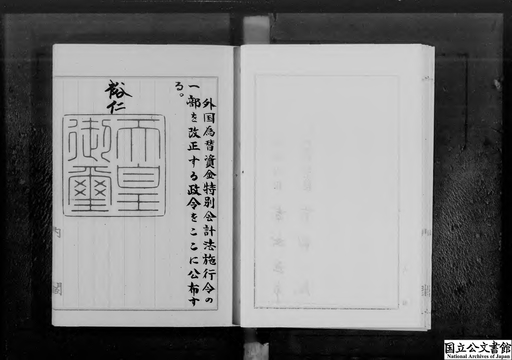 外国為替資金特別会計法施行令の
一部を改正する政令をここに公布す
る。
裕仁
天皇
御璽
内
閣
国立公文書館
National Archives of Japan